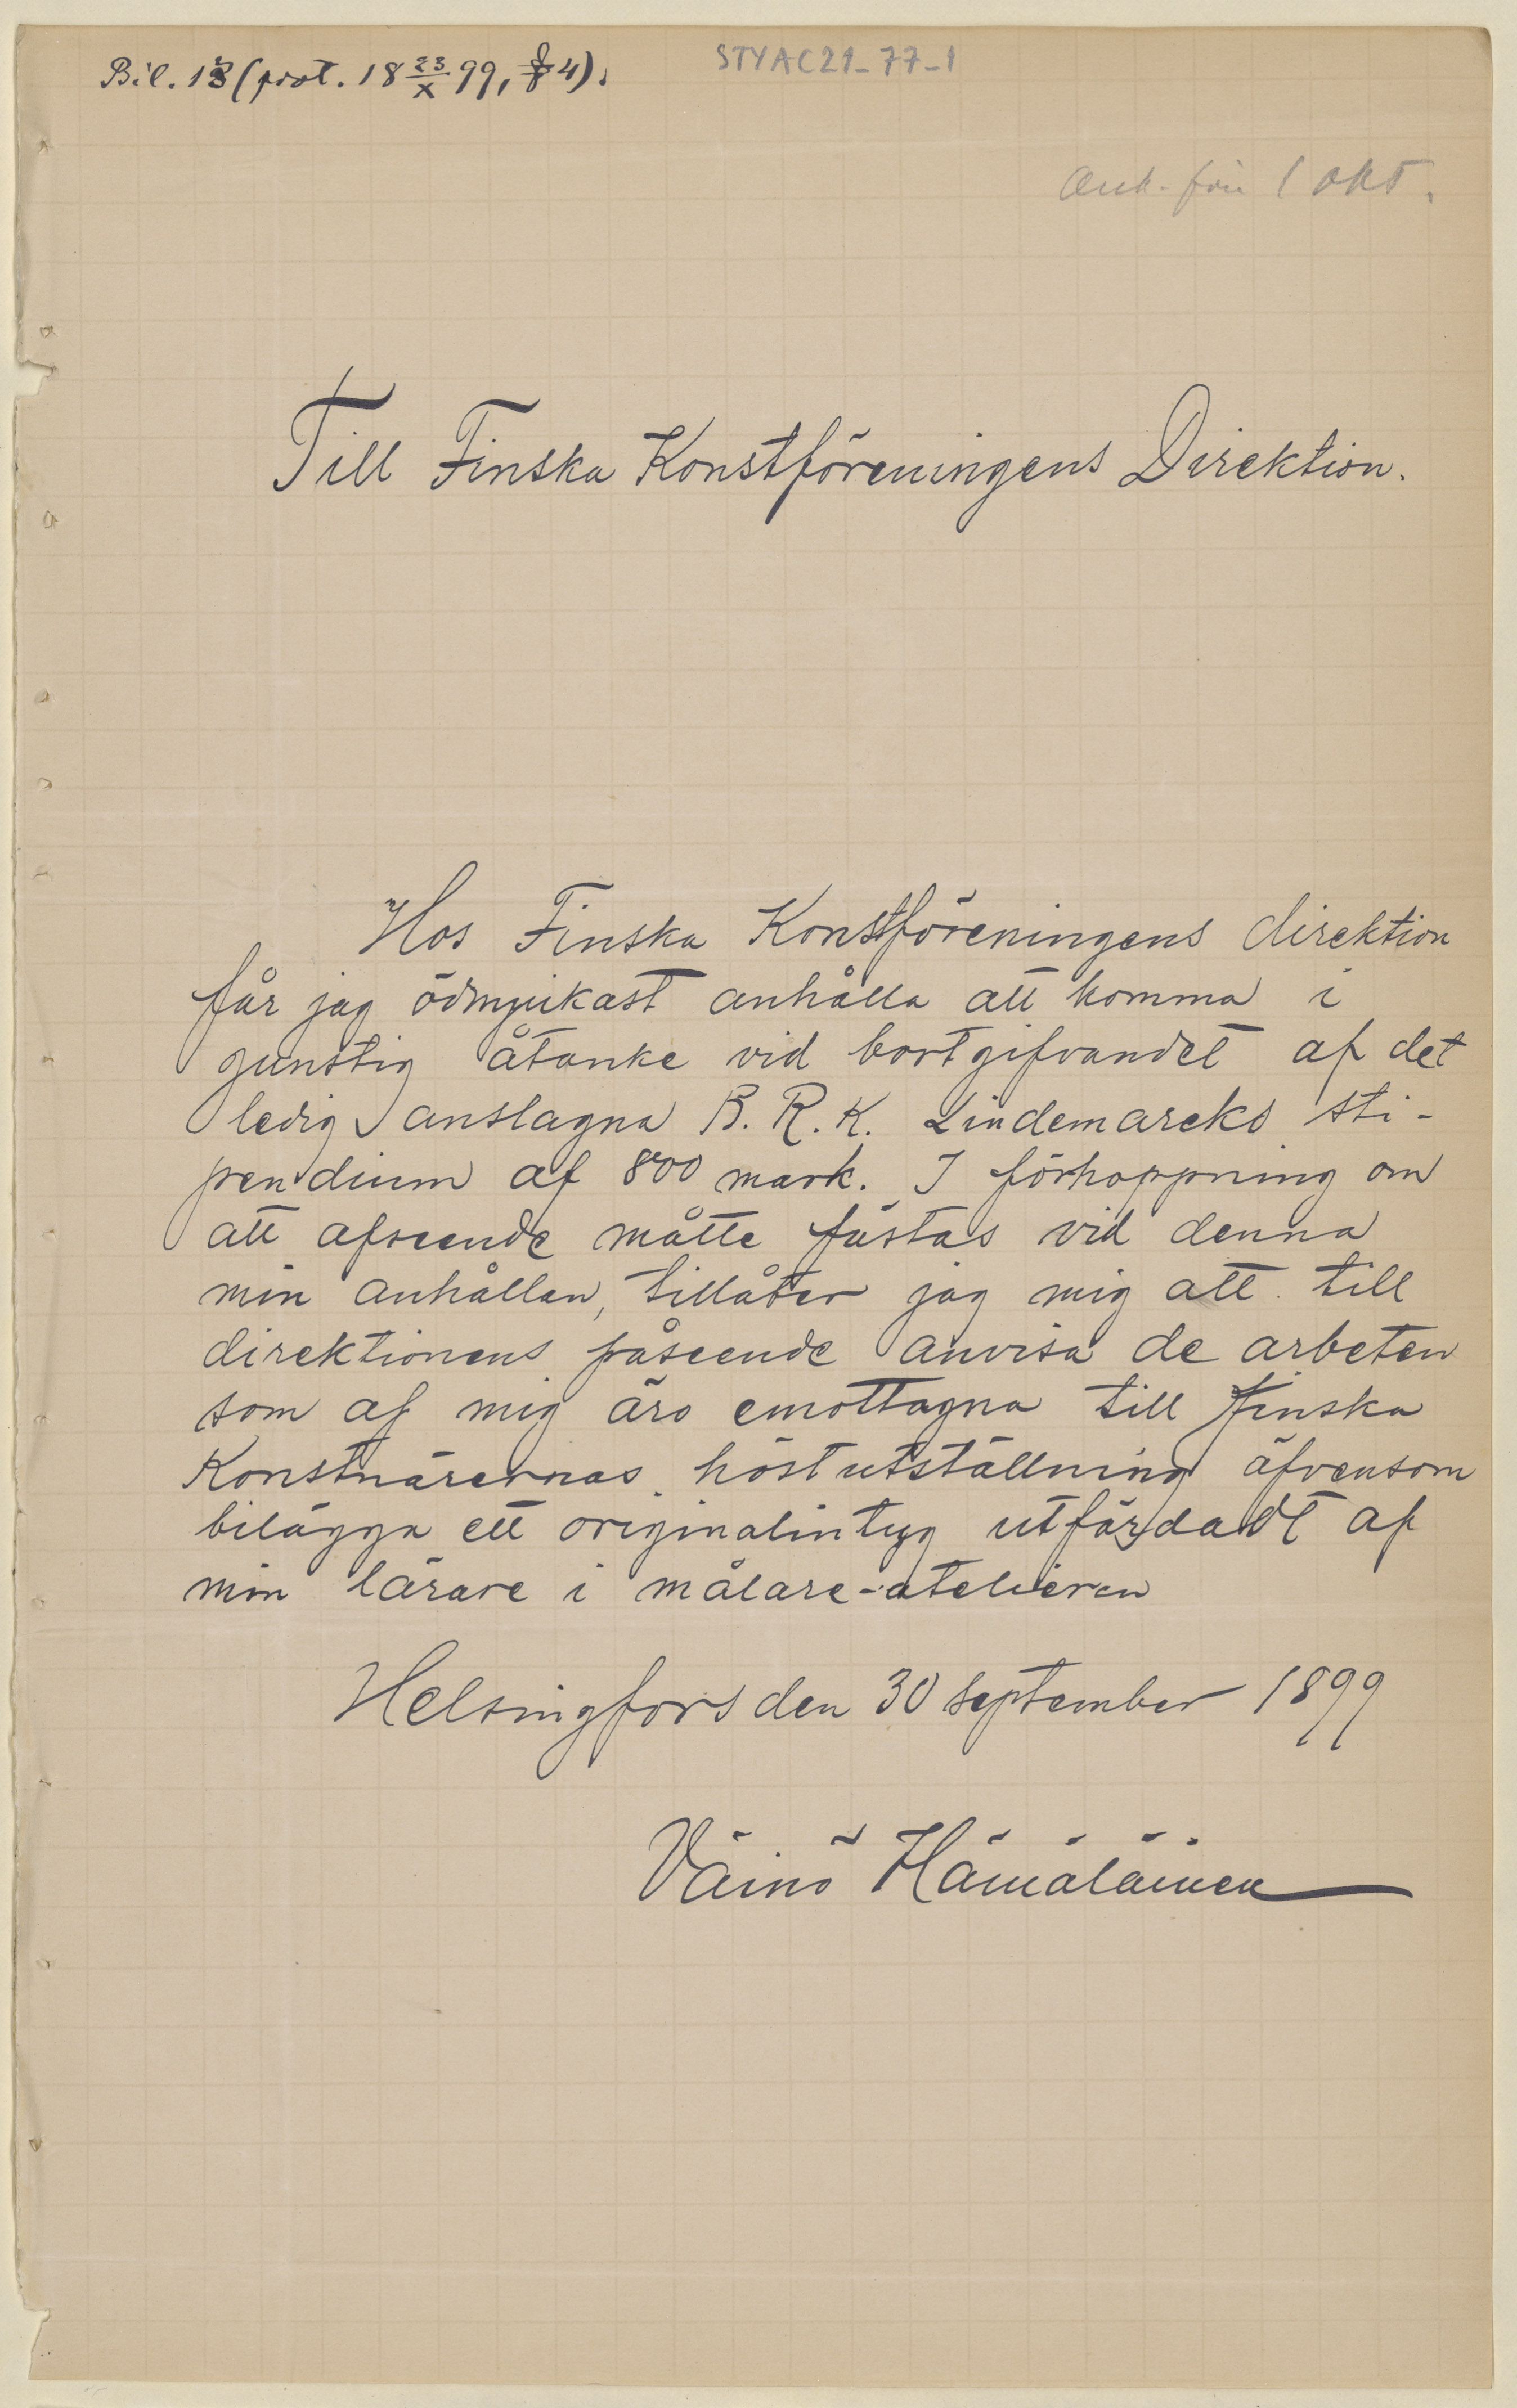 Bil. 13 (prot. 18 23/X 99, § 4).
STYAC21_77_1
Ank. för 1 okt.
Till Finska Konstföreningens Direktion.
Hos Finska Konstföreningens direktion
får jag ödmjukast anhålla att komma i
gunstig åtanke vid bortgifvandet af det
ledig anslagna B. R. K. Lindemarcks sti-
pendium af 800 mark. I förhoppning om
att afseende måtte fästas vid denna
min anhållan, tillåter jag mig att till
direktionens påseende anvisa de arbeten
som af mig äro emottagna till Finska
Konstnärernas höstutställning äfvensom
bilägga ett originalintyg utfärdadt af
min lärare i målare-atelieren
Helsingfors den 30 september 1899
Väinö Hämäläinen